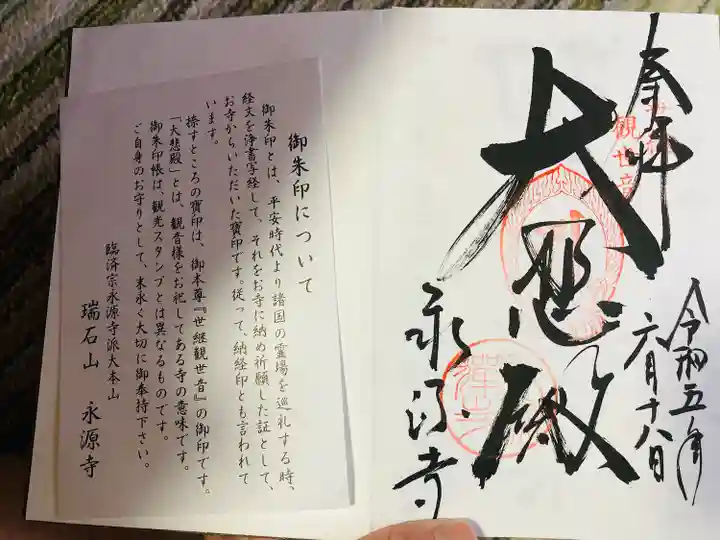 奉拝
観世音
大悲殿
令和五年
六月十八日
永源寺
御朱印について
御朱印とは、平安時代より諸国の霊場を巡礼する時、
経文を浄書写経して、それをお寺に納め祈願した証として、
お寺からいただいた寶印です。従って、納経印とも言われて
います。
捺すところの寶印は、御本尊『世継観世音』の御印です。
「大悲殿」とは、観音様をお祀してある寺の意味です。
御朱印帳は、観光スタンプとは異なるものです。
ご自身のお守りとして、末永く大切に御奉持下さい。
臨済宗永源寺派大本山
瑞石山 永源寺